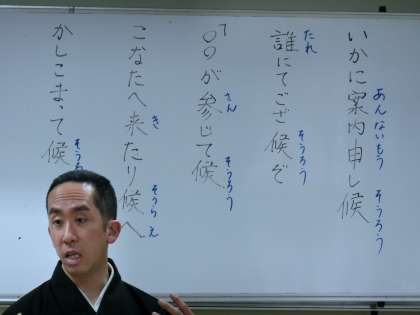 いかに案内申し候
あんないもう そうろう
誰にてござ候ぞ
たれ そうろう
「〇〇が参じて候
さん そうろう
こなたへ来たり候へ
き そうらえ
かしこまって候